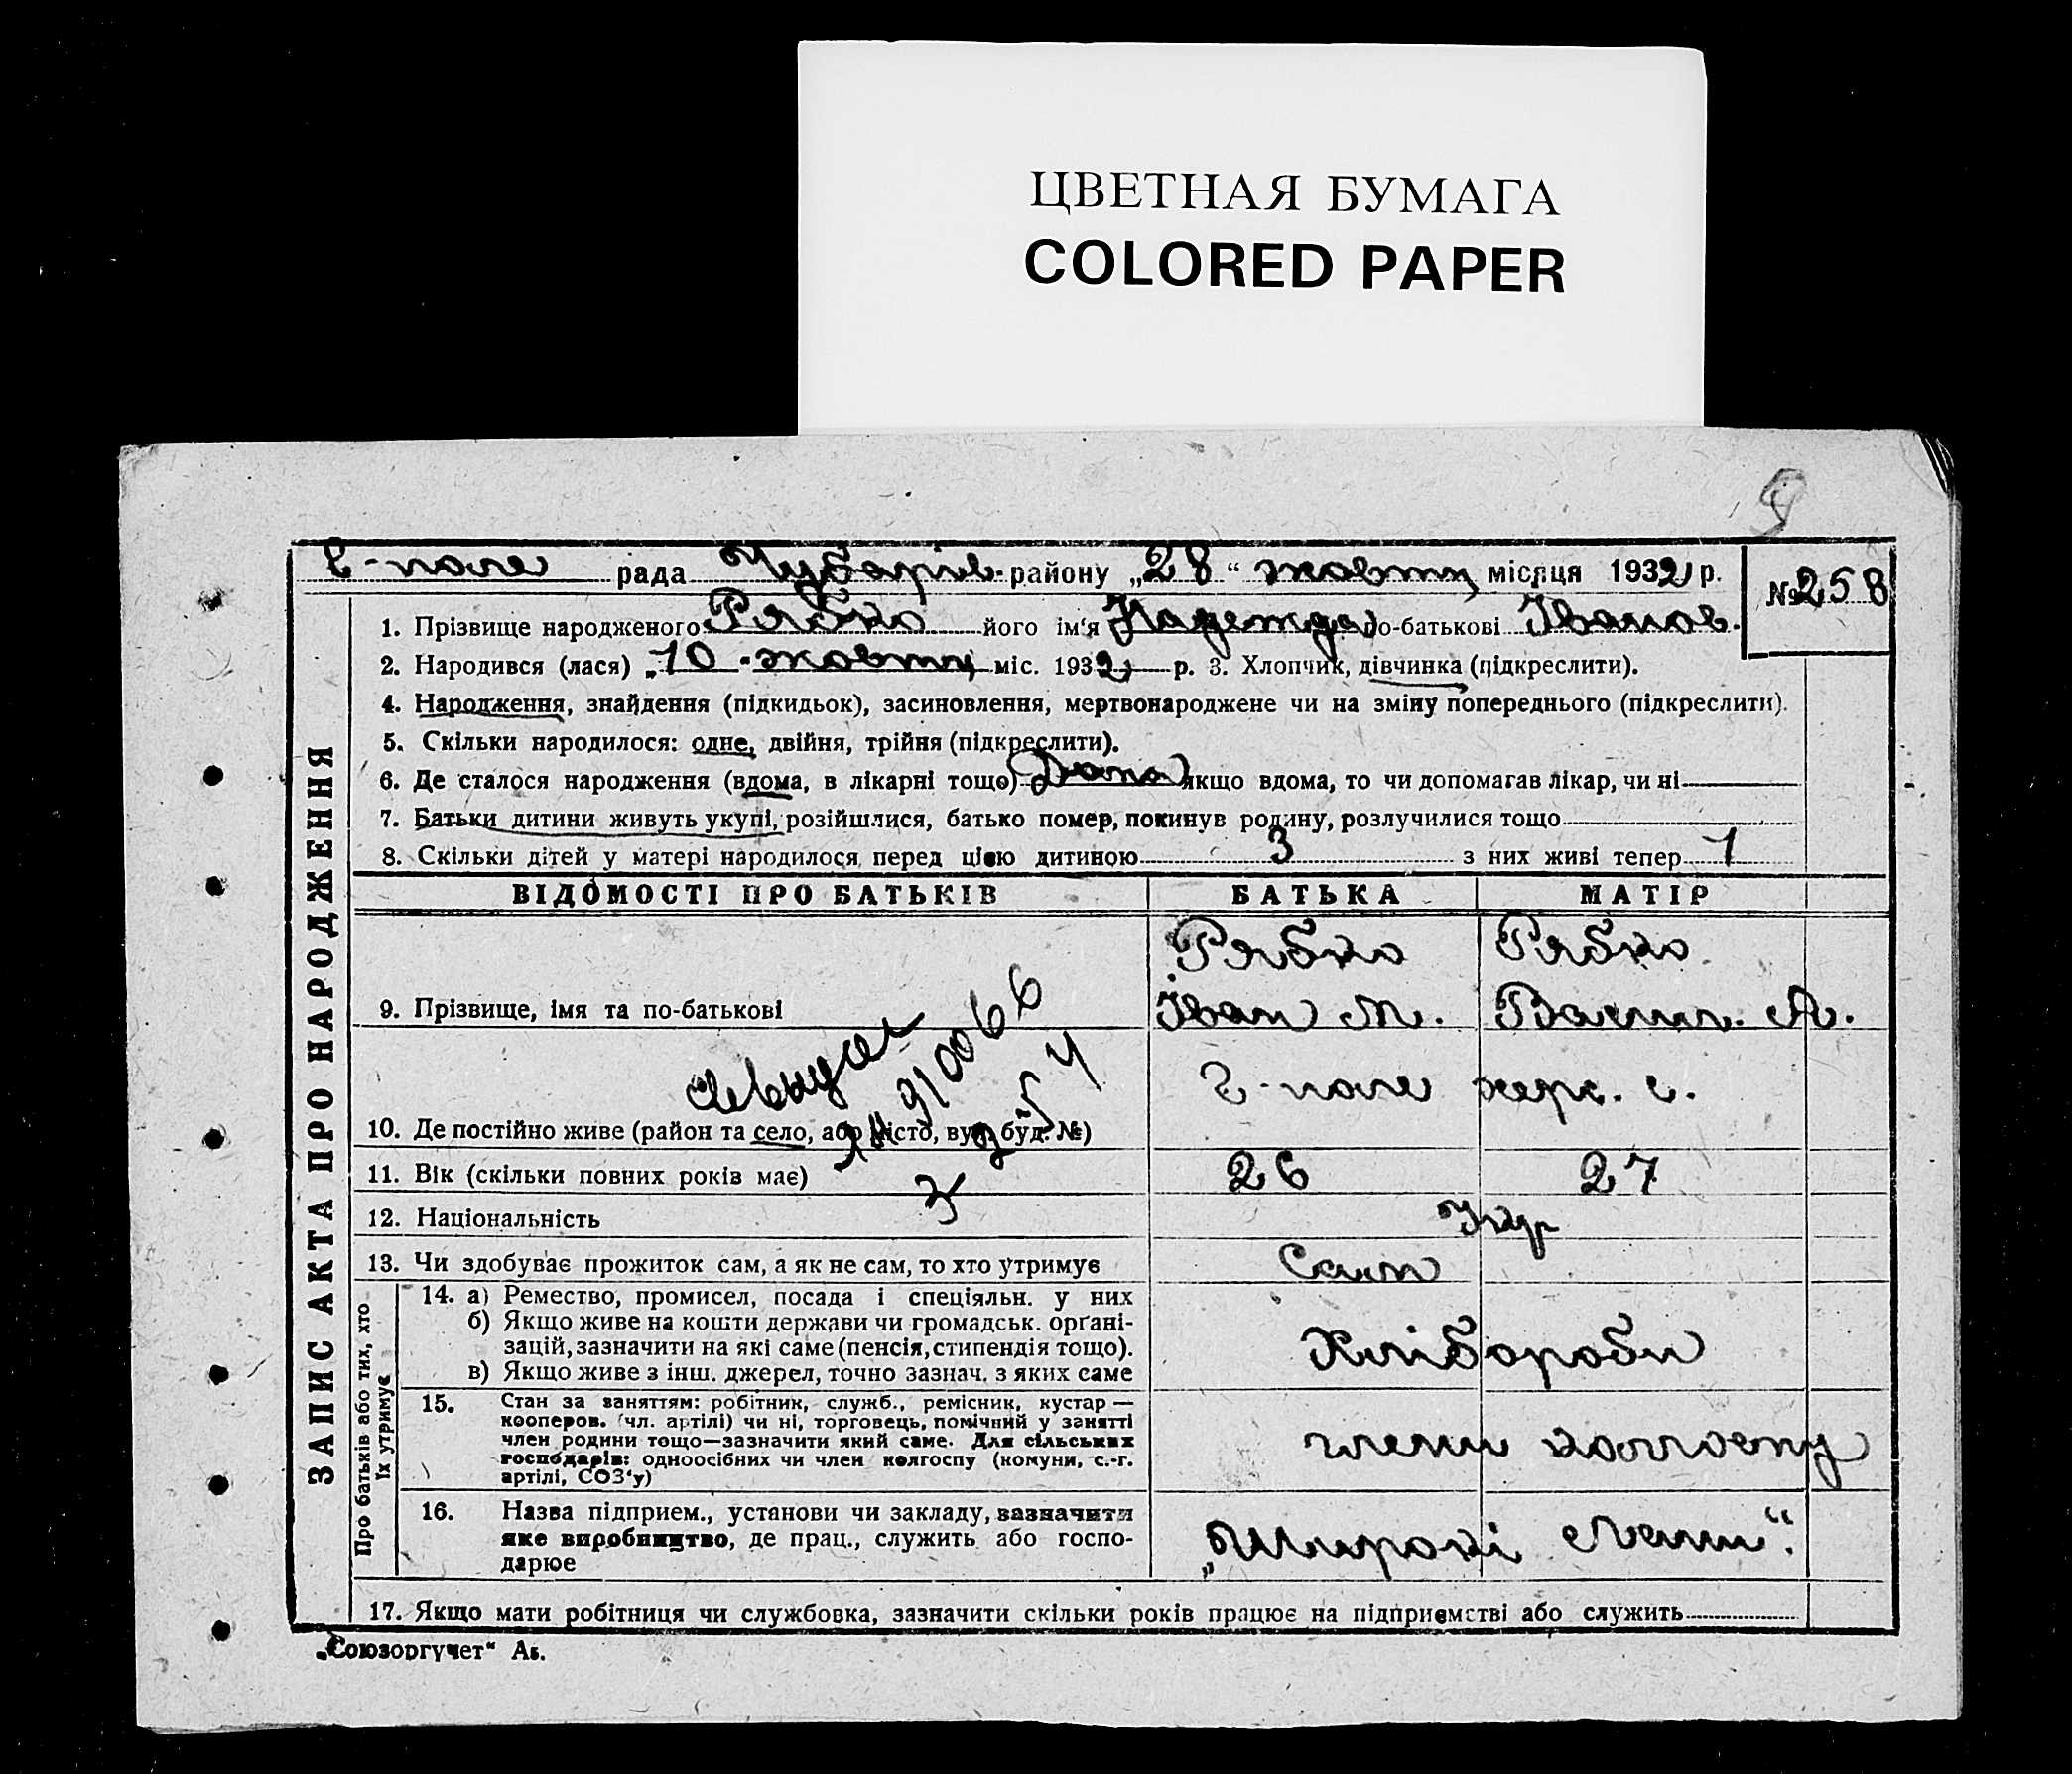 ЦВЕТНАЯ БУМАГА
COLORED PAPER
9
Г-поле рада Чубарів. району „28“ жовтня місяця 1932 р. № 258
1. Прізвище народженого Рябко його ім'я Надежда по-батькові Іванов.
2. Народився (лася) „10 жовтня міс. 1932 р. 3. Хлопчик, дівчинка (підкреслити).
4. Народження, знайдення (підкидьок), засиновлення, мертвонароджене чи на зміну попереднього (підкреслити).
5. Скільки народилося: одне, двійня, трійня (підкреслити).
6. Де сталося народження (вдома, в лікарні тощо) дома якщо вдома, то чи допомагав лікар, чи ні
7. Батьки дитини живуть укупі, розійшлися, батько помер, покинув родину, розлучилися тощо
8. Скільки дітей у матері народилося перед цією дитиною 3 з них живі тепер 1
ВІДОМОСТІ ПРО БАТЬКІВ БАТЬКА МАТІР
Рябко Рябко
9. Прізвище, імя та по-батькові Іван М. Васил. А.
Г-поле херс. с.
10. Де постійно живе (район та село, або місто, вул. буд. №)
11. Вік (скільки повних років має) 26 27
12. Національність Укр
13. Чи здобуває прожиток сам, а як не сам, то хто утримує Сами
14. а) Ремество, промисел, посада і спеціяльн. у них
б) Якщо живе на кошти держави чи громадськ. орґані-
зацій, зазначити на які саме (пенсія, стипендія тощо).
в) Якщо живе з інш. джерел, точно зазнач. з яких саме
Хлібороби
15. Стан за заняттям: робітник, служб., ремісник, кустар —
кооперов. (чл. артілі) чи ні, торговець, помічний у занятті
член родини тощо—зазначити який саме. Для сільських
господарів: одноосібних чи член колгоспу (комуни, с.-г.
артілі, СОЗ'у)
члени колгоспу
16. Назва підприєм., установи чи закладу, зазначити
яке виробництво, де прац., служить або госпо-
дарює
„Широкі Лани“.
17. Якщо мати робітниця чи службовка, зазначити скільки років працює на підприємстві або служить
ЗАПИС АКТА ПРО НАРОДЖЕННЯ
Про батьків або тих, хто
їх утримує
„Союзоргучет“ Ав.